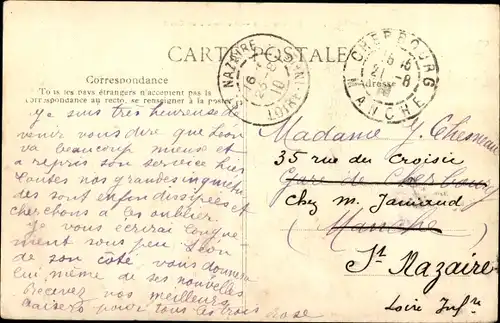 CARTE POSTALE
Correspondance
Tous les pays étrangers n'acceptent pas la
correspondance au recto, se renseigner à la poste
Je suis très heureuse de
venir vous dire que Léon
va beaucoup mieux et
a repris son service hier
Toutes nos grandes inquiétu
des sont enfin dissipées et
cherchons à les oublier.
Je vous écrirai longue
ment sous peu. Léon
de son côté vous donnera
lui même de ses nouvelles
Recevez nos meilleurs
baisers pour tous les trois
Rose
ST NAZAIRE
16
10
LOIRE INF
CHERBOURG
21 - 8
MANCHE
Adresse
Madame J. Chesneau
35 rue du Croisic
Gare de Cherbourg
chez M. Jamaud
Manche
St Nazaire
Loire Infre